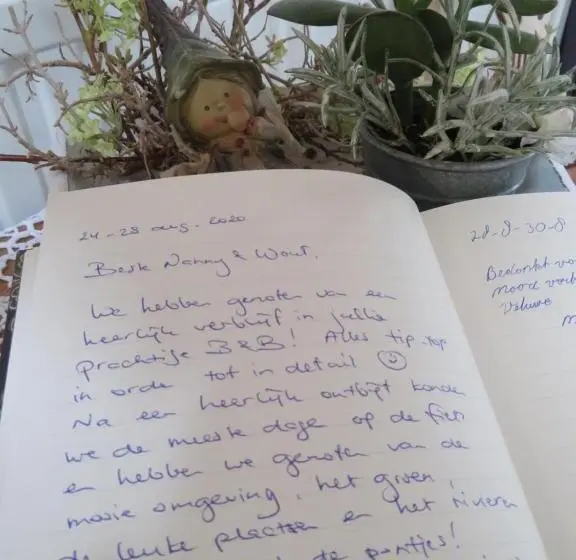 24-28 aug. 2020
Beste Nanny & Wout,
We hebben genoten van een
heerlijk verblijf in jullie
prachtige B&B! Alles tip-top
in orde tot in detail ☺
Na een heerlijk ontbijt konden
we de meeste dage op de fiets
en hebben we genoten van de
mooie omgeving, het groen,
de leuke plaatsen en het rivieren
de pontjes!
28-8-30-8
Bedankt vo
Veluwe